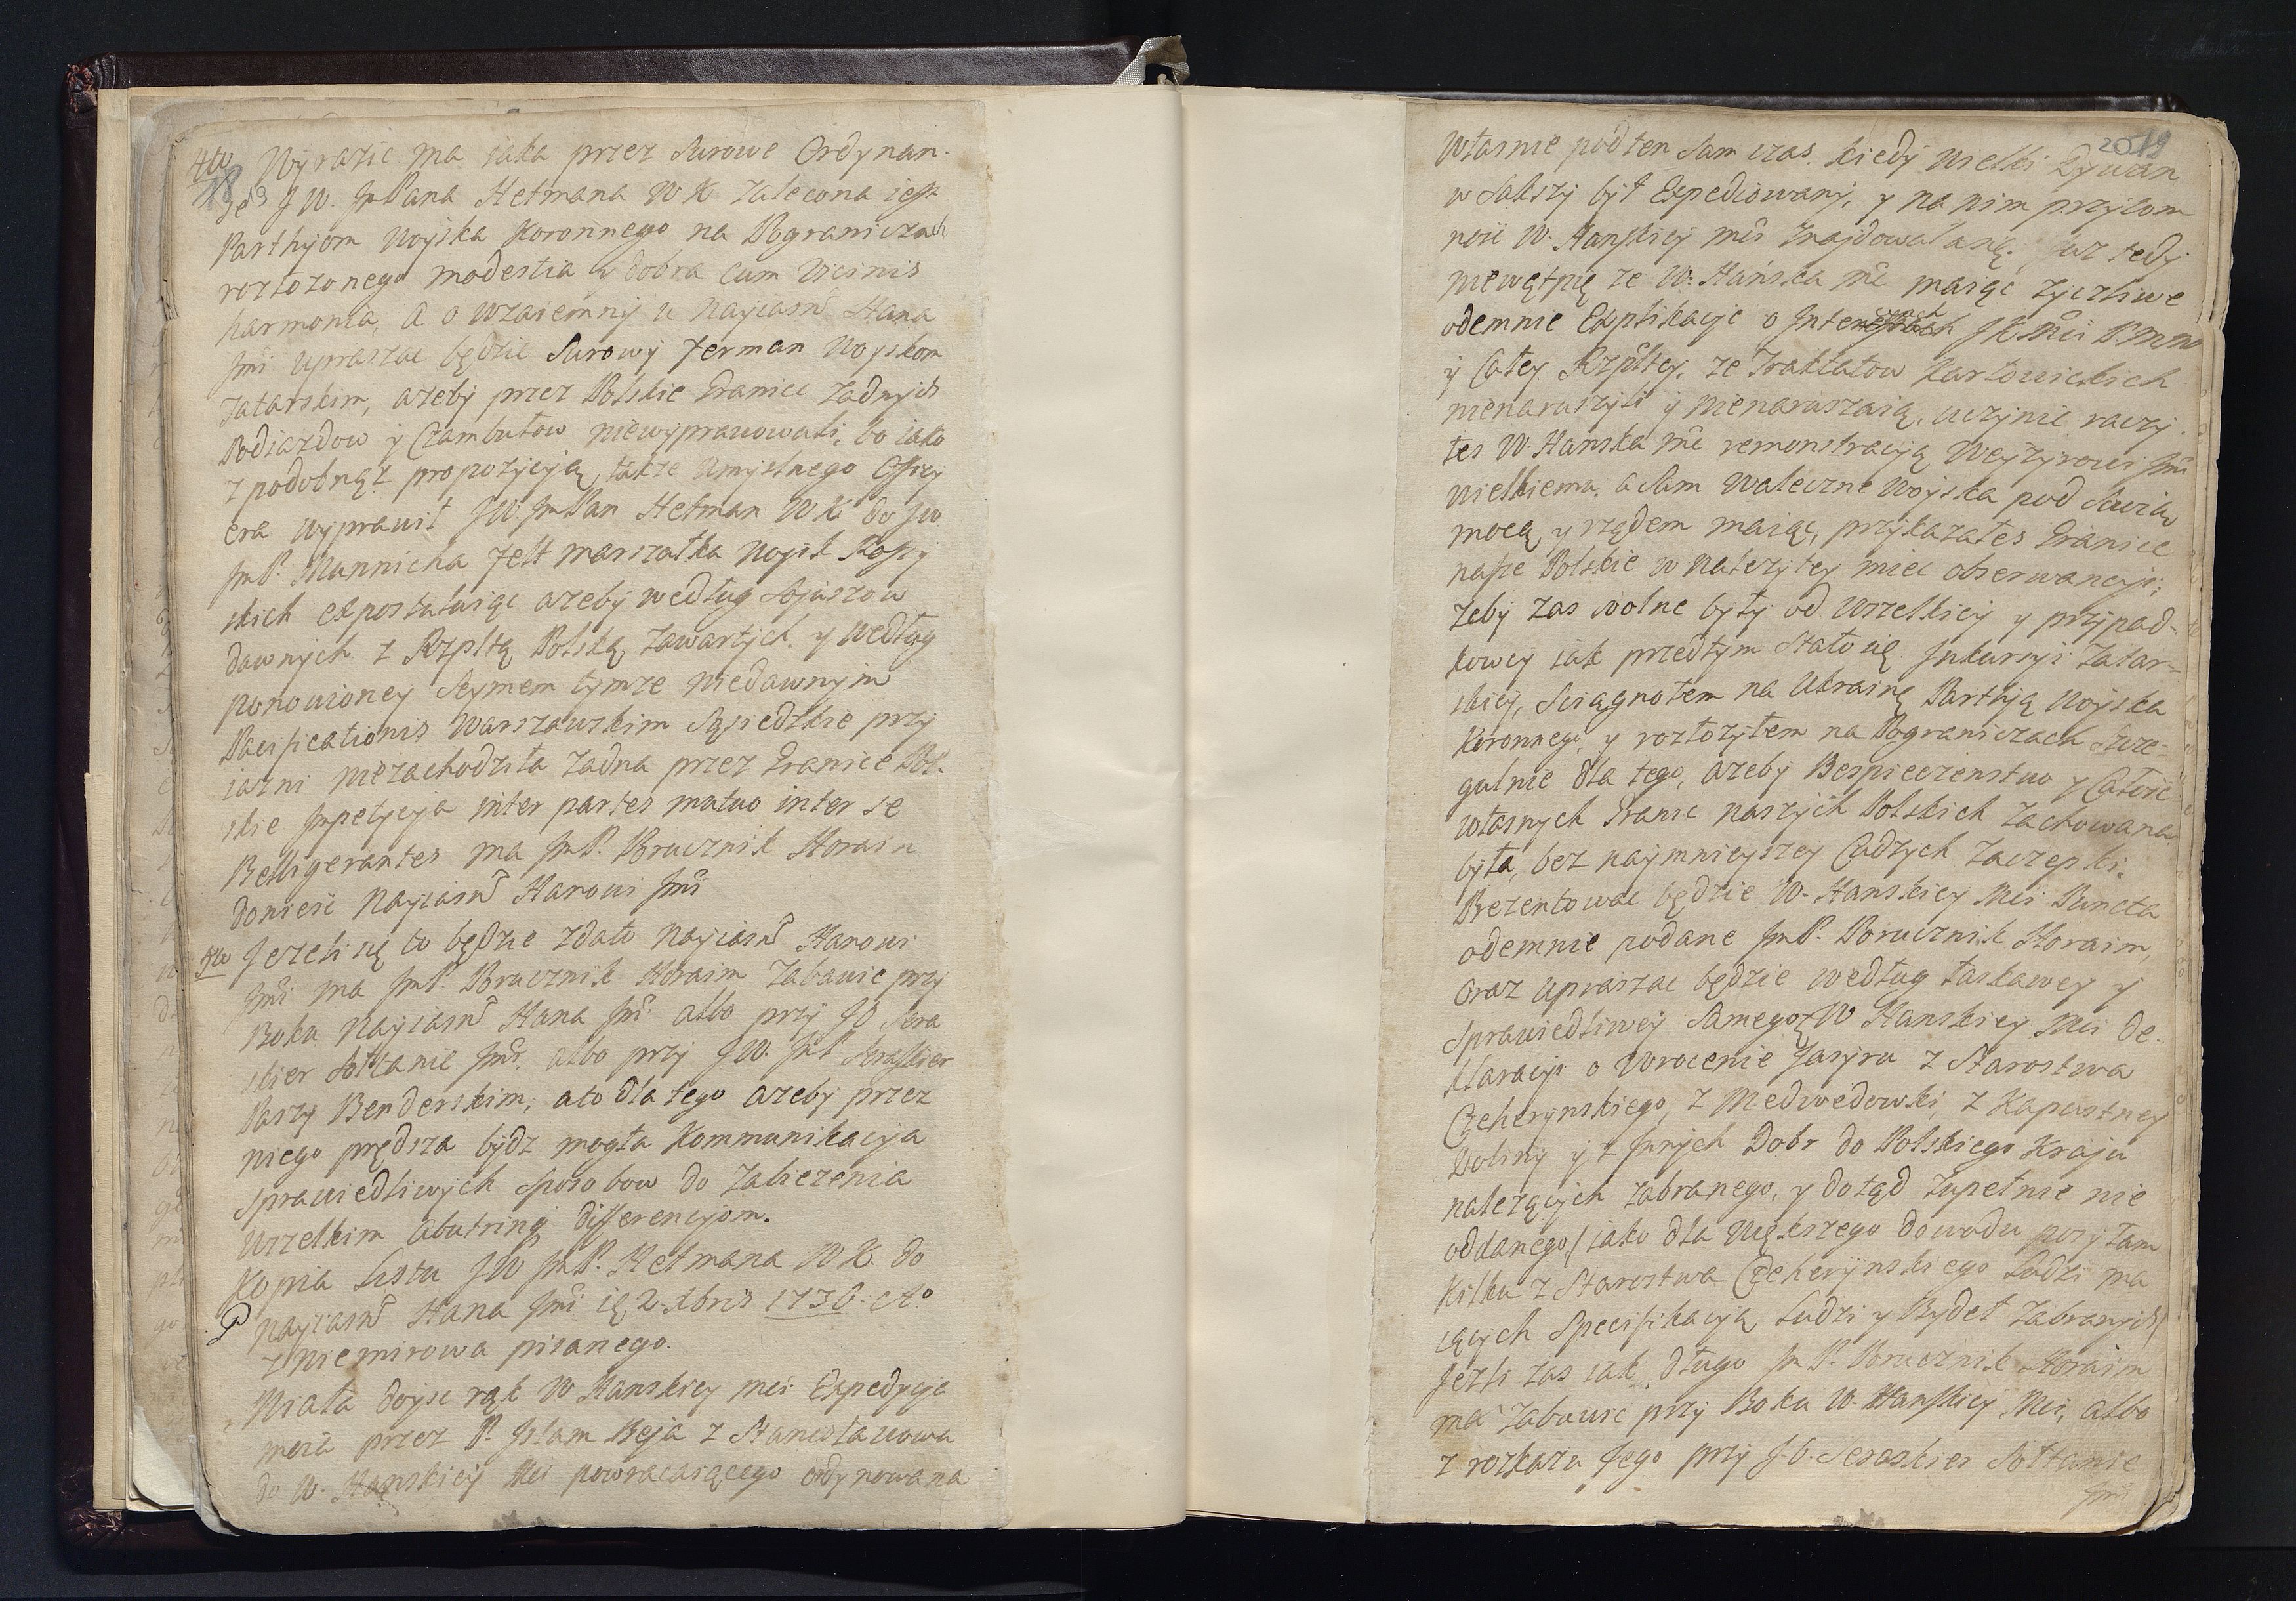 4to Wyrazic ma iaka przez Surowe Ordynan-
se JW. JmPana Hetmana WK zalecona iest
Parthyiom Woyska Koronnego na Pograniczach
rozłozonego modestia y dobra cum Vicinis
harmonia, a o wzaiemny u Nayiasn Hana
Jmci upraszac będzie Surowy Ferman Woyskom
Tatarskim, azeby przez Polskie Granice zadnych
Podiazdow y Czambułow niewyprawowali, bo iako
z podobnąż propozycyią, takze Umyslnego Offcy
era wyprawił JW. JmPan Hetman WK do JW.
JmP. Munnicha Felt marszałka Woysk Rossy
skich expostuluiąc azeby według Sojuszow
dawnych z Rzpltą Polską zawartych y według
ponowioney Seymem tymze niedawnym
Pacificationis Warszawskim Sąsiedzkie przy
iazni niezachodziła zadna przez Granice Pol-
skie Impetycyia inter partes mutuo inter se
Belligerantes ma JmP. Porucznik Horain
donieść Nayiasn Hanowi Jmci
5to Jezeli się to będzie zdało Nayiasn Hanowi
Jmci ma JmP. Porucznik Horaim zabawic przy
Boku Nayiasn Hana Jmci albo przy JO Sera
skier Sołtanie Jmci, albo przy JW. JmP Seraskier
Paszy Benderskim, a to dla tego azeby przez
niego prędsza bydz mogła Kommunikacyia
sprawiedliwych sposobow do Zabiezenia
wszelkim abutrinq differencyiom.
Kopia Listu JW JmP. Hetmana WK. do
Nayiasn Hana Jmci 2. Xbris 1736. Ao
z Niemirowa pisanego.
Miała doysc rąk W Hanskiey mci Expedycyia
moia przez P. Islam Beja z Stanisławowa
do W. Hanskiey Mci powracaiącego ordynowana
20 19
Własnie pod ten sam czas. kiedy Wielki Dywan
w Sakszy był Expediowany, y na nim przytom
nosc W. Hanskiey mci znajdowała się. juz tedy
niewątpię ze W. Hańska mc maiąc zyczliwe
odemnie Explikacyie o Interessach JKMci P.M.M
y Całey Rzpltey, ze Traktatow Karłowickich
nienaruszyli y nienaruszaią, uczynic raczy
łes W. Hanska mc remonstracyią Wezyrowi Jmci
Wielkiemu. a Sam Waleczne Woyska pod Swoią
mocą y rządem maiąc, przykazałes Granice
nasze Polskie w nalezytey miec obserwancyi;
zeby zas wolne były od wszelkiey y przypad-
kowey iak przedtym stało się Inkursyi Tatar-
skiey, Sciągnołem na Ukrainę Parthyą Woyska
Koronnego, y rozłozyłem na Pograniczach Szcze-
gulnie dla tego, azeby Bespieczenstwo y Całość
własnych Granic naszych Polskich zachowana
była, bez naymnieyszey Cudzych zaczepki.
Prezentowac będzie W. Hanskiey Mci Puncta
odemnie podane JmP. Porucznik Horaim,
oraz upraszac będzie według łaskawey y
sprawiedliwey samegoz W Hanskiey Mci De-
klaracyi o Wrocenie Jasyru z Starostwa
Czeherynskiego, z Medwedowki, z Kapustney
Doliny y z Jnnych Dobr do Polskiego Kraju
nalezących zabranego, y dotąd zupełnie nie
oddanego,/ iako dla większego dowodu posyłam
Kilku z Starostwa Czeheryńskiego Ludzi ma
iących Specifikacyią Ludzi y Bydeł zabranych/
Jezli zas iak długo JmP. Porucznik Horaim
ma zabawic przy Boku W. Hanskiey Mci, albo
z rozkazu Jego przy J.O. Seraskier Sołtanie
Jmci